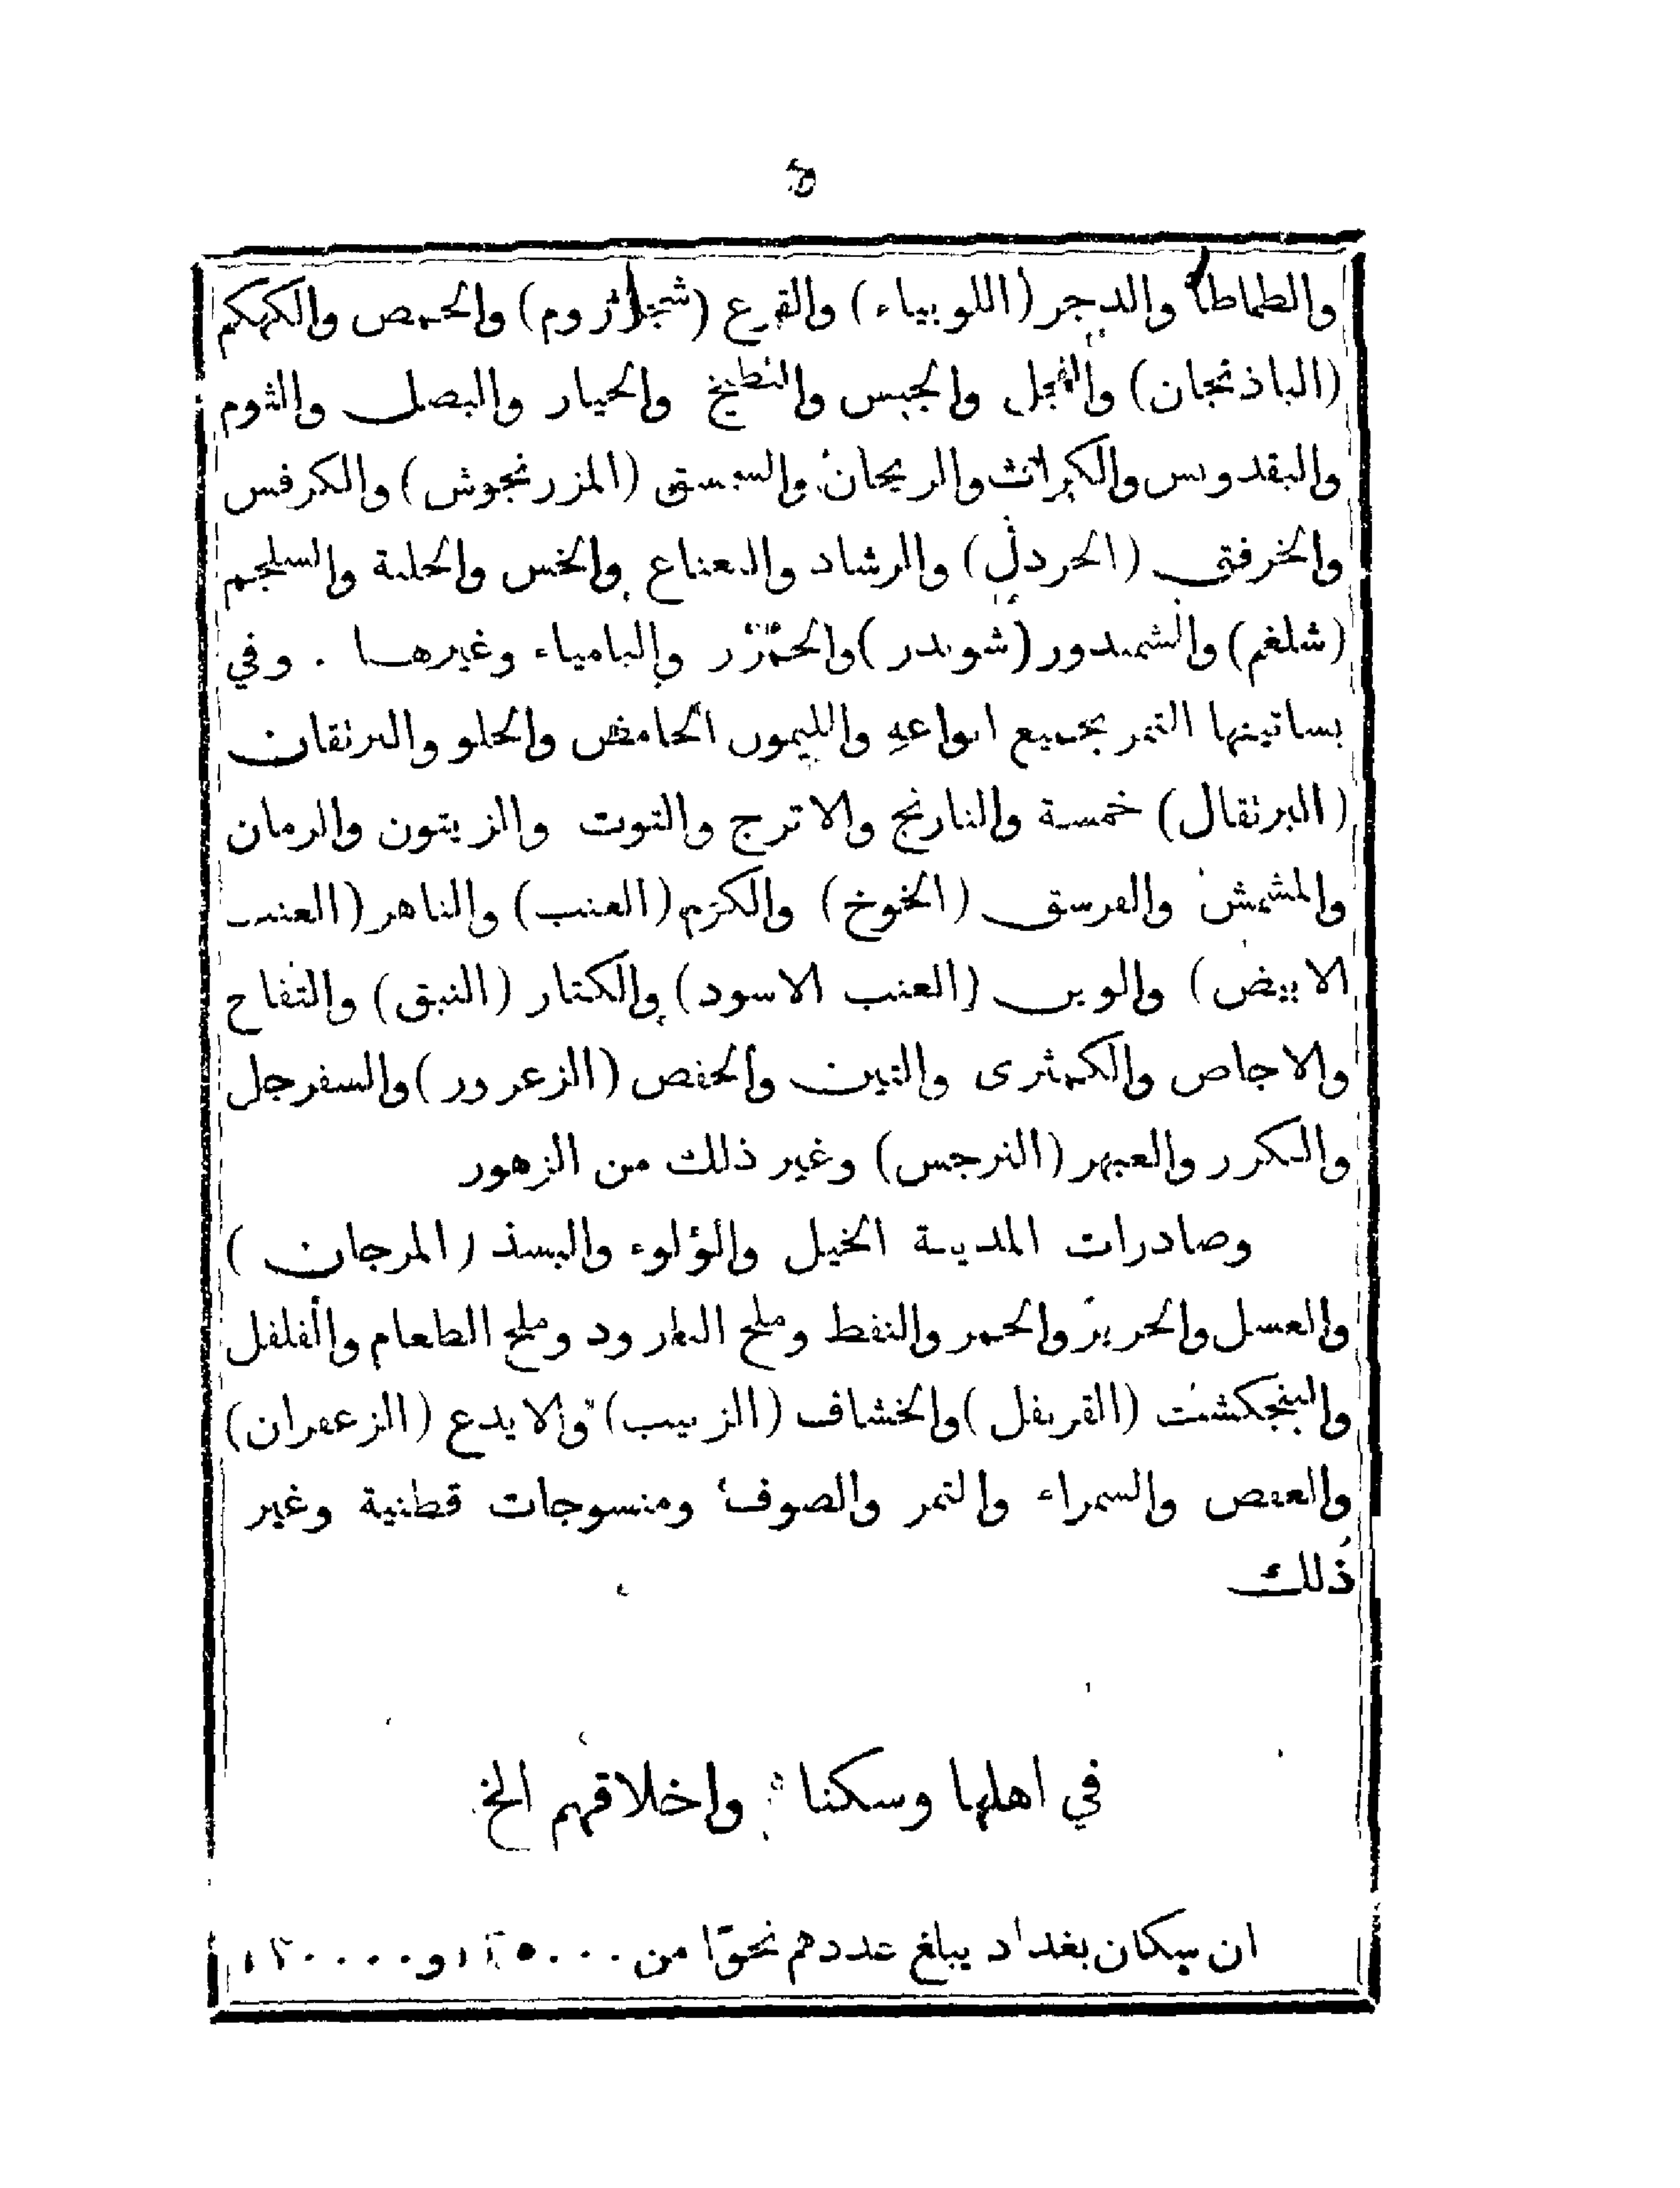 ٥
والطماطا والدجر (اللوبياء) والقرع (شجر الزوم) والحمص والكهكم
(الباذنجان) والفجل والجبس والبطيخ والخيار والبصل والثوم
والبقدونس والكراث والريحان والسمسق (المزرنجوش) والكرفس
والخرفق (الخردل) والرشاد والنعناع والخس والحلبة والسلجم
(شلغم) والشمندور (شوندر) والبامياء وغيرها . وفي
بساتينها التمر بجميع انواعه والليمون الحامض والحلو والبرتقان
(البرتقال) خمسة والنارنج والاترج والتوت والزيتون والرمان
والمشمش والفرسق (الخوخ) والكرم (العنب) والناهر (العنب
الابيض) والوين (العنب الاسود) والكنار (النبق) والتفاح
والاجاص والكمثرى والتين والحفص (الزعرور) والسفرجل
والكرر والعبهر (النرجس) وغير ذلك من الزهور
وصادرات المدينة الخيل واللؤلوء والبسذ (المرجان)
والعسل والحرير والحمر والنفط وملح البارود وملح الطعام والفلفل
والبنجكشت (القرنفل) والخشاف (الزبيب) والايدع (الزعفران)
والعفص والسمراء والتمر والصوف ومنسوجات قطنية وغير
ذلك
في اهلها وسكنا واخلاقهم الخ
ان سكان بغداد يبلغ عددهم نحوًا من